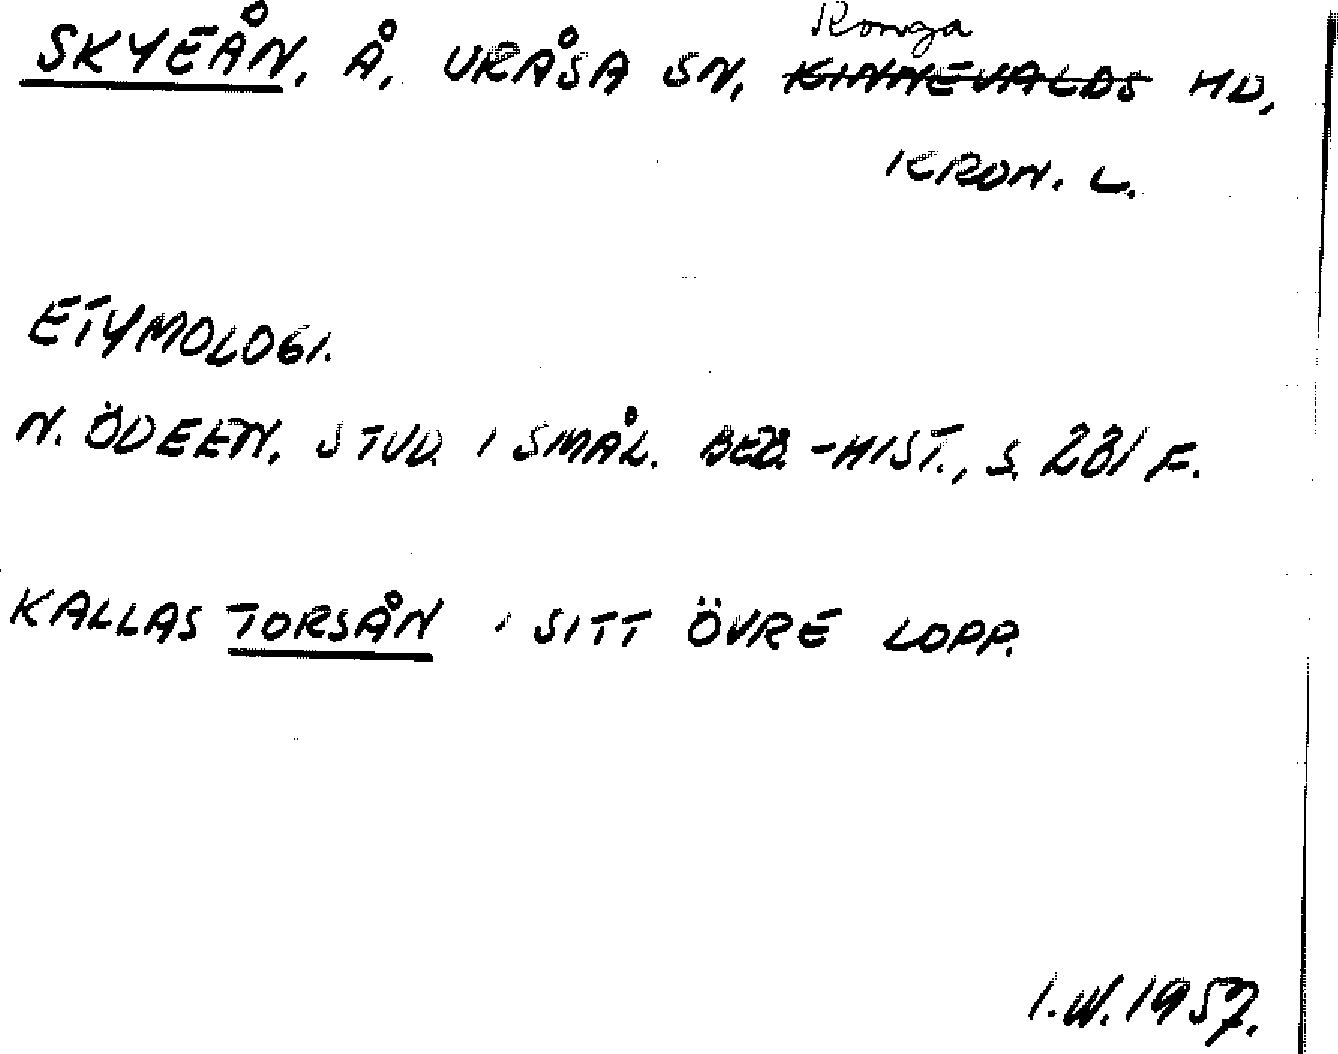 Konga
SKYEÅN, Å, URÅSA SN, KINNEVALDS HD,
KRON. L.
ETYMOLOGI.
N. ÖDEEN, STUD. I SMÅL. BEB.-HIST., S. 231 F.
KALLAS TORSÅN I SITT ÖVRE LOPP.
I.W. 1957.